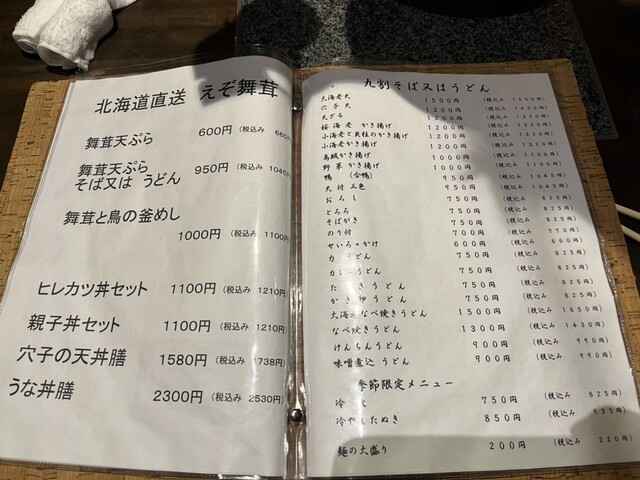 北海道直送 えぞ舞茸
舞茸天ぷら 600円 (税込み 660
舞茸天ぷら
そば又は うどん 950円 (税込み 1045
舞茸と鳥の釜めし
1000円 (税込み 1100
ヒレカツ丼セット 1100円 (税込み 1210円
親子丼セット 1100円 (税込み 1210円
穴子の天丼膳 1580円 (税込み 1738円)
うな丼膳 2300円 (税込み 2530円)
九割そば又はうどん
大海老天 1500円 (税込み 1650円)
穴子天 1300円
天ざる 1200円 (税込み 1320円)
桜海老 かき揚げ 1200円 (税込み 1320円)
小海老と貝柱のかき揚げ 1200円
小海老かき揚げ 1200円
烏賊かき揚げ 1000円 (税込み 1100円)
野菜かき揚げ 1000円 (税込み 1100円)
鴨 (合鴨) 950円 (税込み 1045円)
天付三色 950円 (税込み 1045円)
おろし 750円 (税込み 825円)
とろろ 750円 (税込み 825円)
そばがき 750円 (税込み 825円)
のり付 700円 (税込み 770円)
せいろ・かけ 600円 (税込み 660円)
力 うどん 750円 (税込み 825円)
カレーうどん 750円 (税込み 825円)
た き うどん 750円 (税込み 825円)
かき卵うどん 750円 (税込み 825円)
大海老なべ焼きうどん 1500円 (税込み 1650円)
なべ焼うどん 1300円 (税込み 1430円)
けんちんうどん 900円 (税込み 990円)
味噌煮込 うどん 900円 (税込み 990円)
季節限定メニュー
冷 750円 (税込み 825円)
冷やしたぬき 850円 (税込み 935円)
麺の大盛り 200円 (税込み 220円)